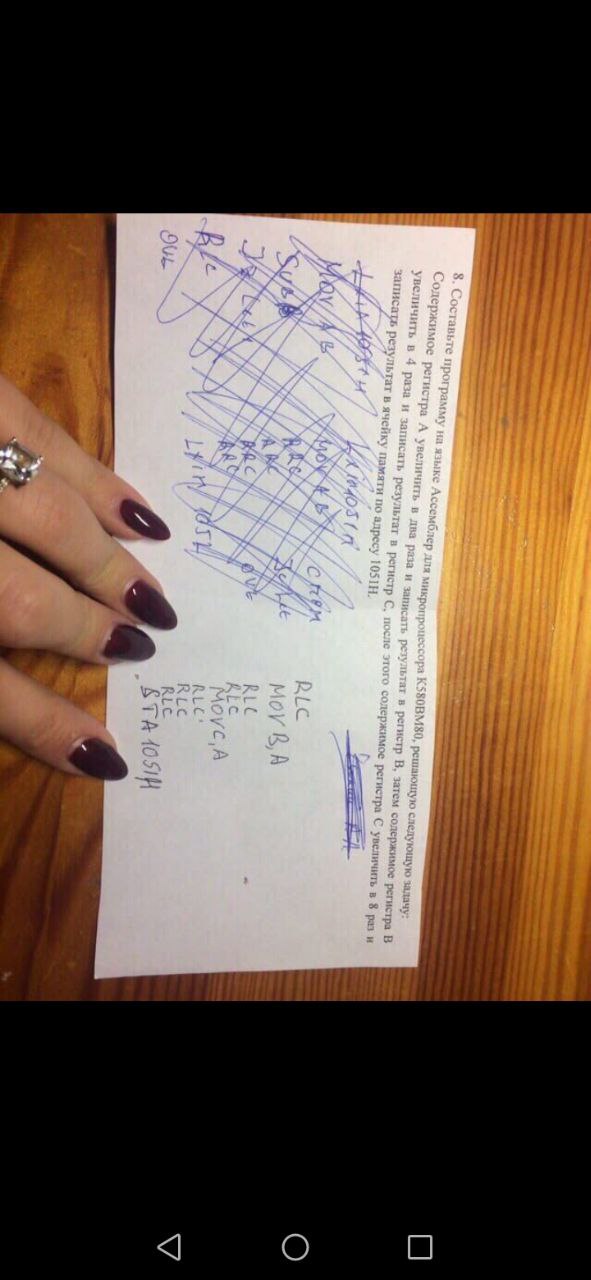 8. Составьте программу на языке Ассемблер для микропроцессора К580ВМ80, решающую следующую задачу:
Содержимое регистра А увеличить в два раза и записать результат в регистр В, затем содержимое регистра В
увеличить в 4 раза и записать результат в регистр С, после этого содержимое регистра С увеличить в 8 раз и
записать результат в ячейку памяти по адресу 1051Н.
MOV A B
SUB B
RLC
MOV A B
RRC
RRC
RRC
RRC
RLC
MOV B, A
RLC
RLC
MOV C, A
RLC
RLC
RLC
STA 1051H